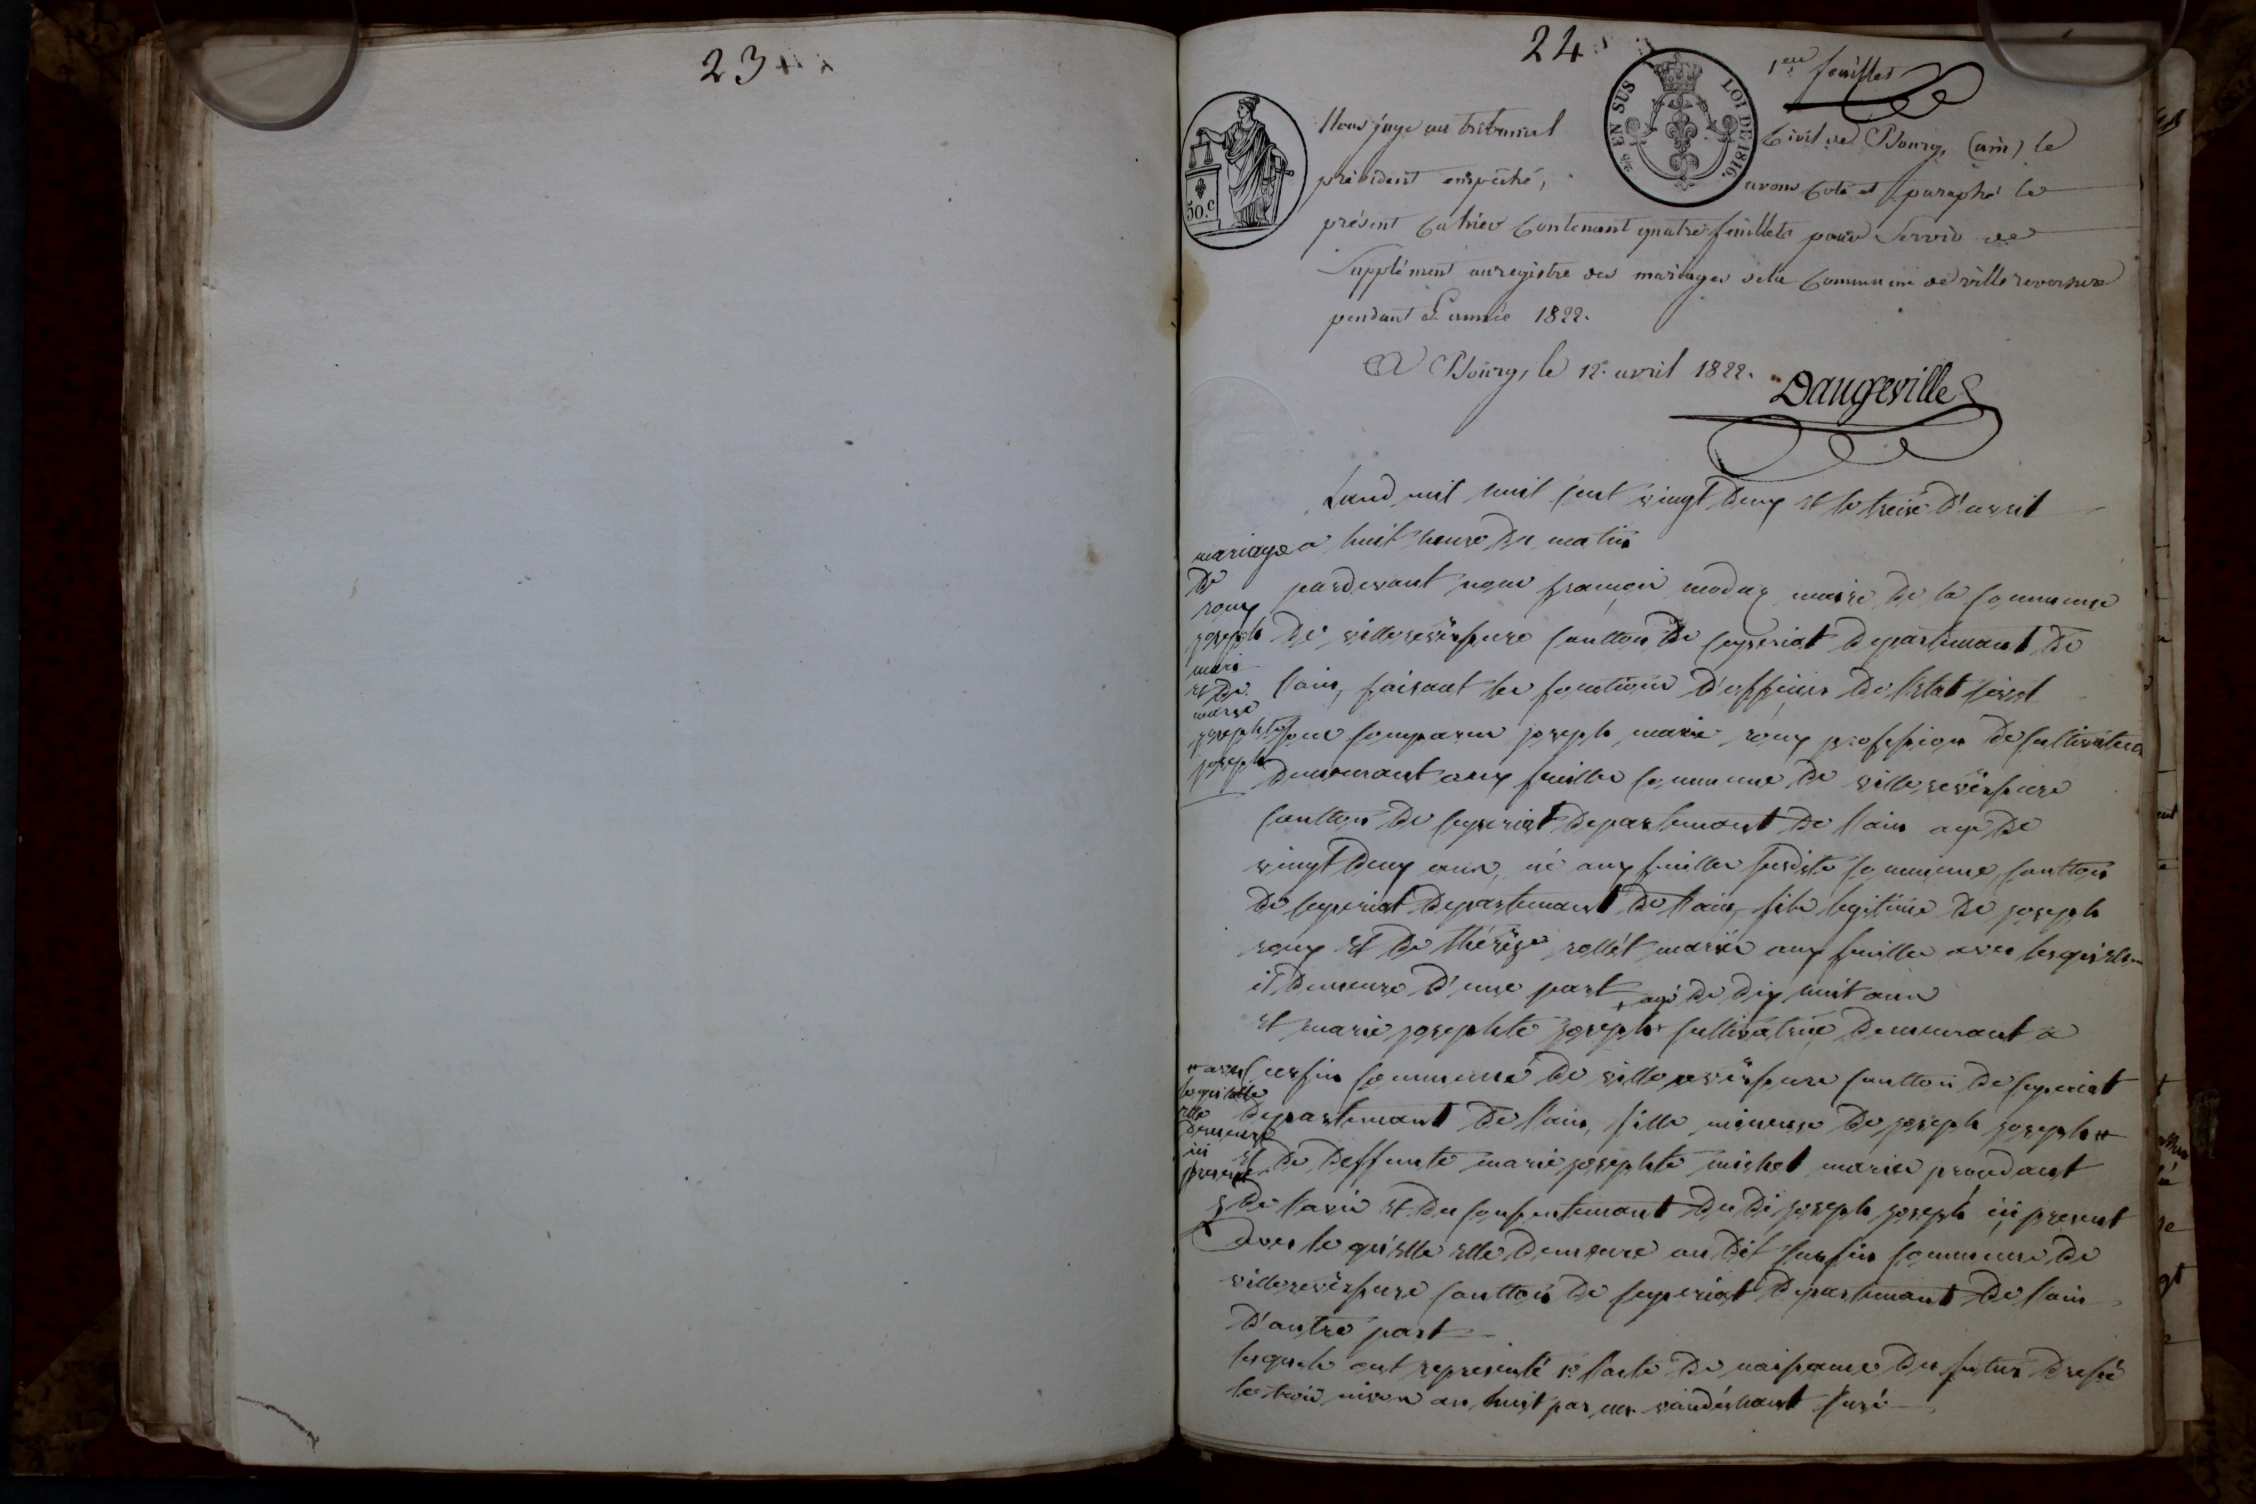 23
24
1er feuillet
EN SUS LOI DE 1816.
50.c
Nous juge au tribunal civil de Bourg, (ain) le
président empêché, avons coté et paraphé le
présent cahier contenant quatre feuillets pour servir de
supplément au registre des mariages de la commune de villereversure
pendant l'année 1822.
A Bourg, le 12. avril 1822.
Daugeville
Land mil huit cent vingt deux et le treise d'avril
a huit heure du matin
mariage
de
roux
joseph
marie
et de
marie
josephte
joseph
pardevant nous françois moduz maire de la commune
de villereversure cantton de ceyseriat departemant de
l'ain, faisant les fonctions d'officier de l'etat sivil
sont comparus joseph marie roux profession de cultivateur
demeurant aux fuilles commune de villereversure
cantton de ceyseriat departemant de l'ain agé de
vingt deux ans, né aux fuilles susdite commune, cantton
de ceyseriat departemant de l'ain, fils legitime de joseph
roux et de thérèse rollet mariés aux fuilles avec lesquels
il demeure d'une part
agé de dix huit ans
et marie josephte joseph cultivatrice demeurant a
cusfin commune de villereversure cantton de ceyseriat
departemant de l'ain, fille mineure de joseph joseph #
# avec
lequielle
elle
demeure
ici
present
et de deffunte marie josephte michel mariés procedant
de l'avis et du consentemant du di joseph joseph ici present
avec le qu'elle elle demeure au dit cusfin commune de
villereversure cantton de ceyseriat departemant de l'ain
d'autre part
lesquels ont representé 1º l'acte de naissance du futur dressé
le trois nivose an huit par curé